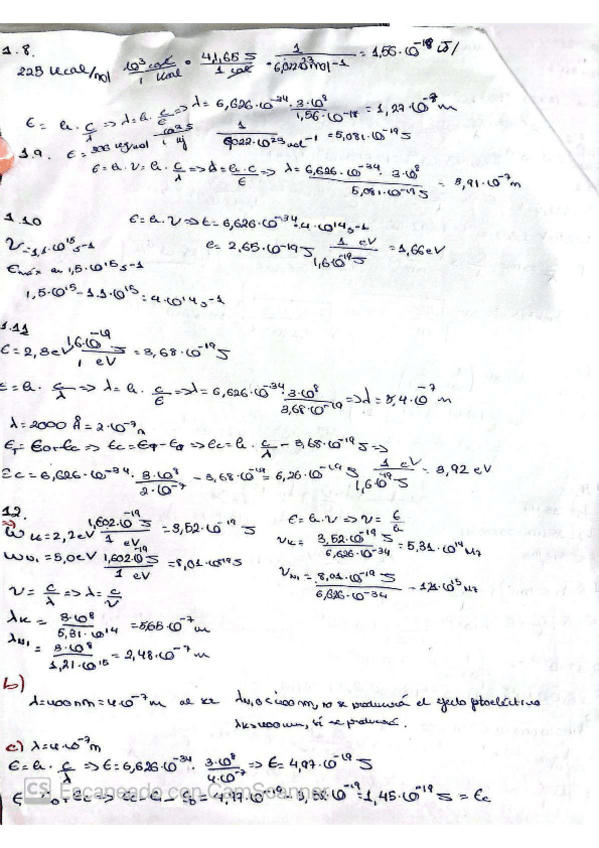 1.8.
225 Kcal/mol · 10³ cal / 1 Kcal · 41,65 J / 1 cal · 1 / 6,022·10²³ mol-1 = 1,56·10⁻¹⁸ J/
E = h · c/λ => λ = h · c/E => λ = 6,626·10⁻³⁴ · 3·10⁸ / 1,56·10⁻¹⁸ = 1,27·10⁻⁷ m
1.9. E = KJ/mol · 10³ J / 1 KJ · 1 / 6022·10²³ mol⁻¹ = 5,081·10⁻¹⁹ J
E = h · ν = h · c/λ => λ = h · c/E => λ = 6,626·10⁻³⁴ · 3·10⁸ / 5,081·10⁻¹⁹ J = 3,91·10⁻⁷ m
1.10 E = h · ν => E = 6,626·10⁻³⁴ · 4·10¹⁴ s-1
ν = 1,1·10¹⁵ s-1 E = 2,65·10-19 J · 1 eV / 1,6·10⁻¹⁹ J = 1,66 eV
1,5·10¹⁵ s-1
1,5·10¹⁵ - 1.1·10¹⁵ = 4·10¹⁴ s-1
1.11
E = 2,3 eV · 1,6·10⁻¹⁹ J / 1 eV = 3,68·10⁻¹⁹ J
E = h · c/λ => λ = h · c/E => λ = 6,626·10⁻³⁴ · 3·10⁸ / 3,68·10⁻¹⁹ => λ = 5,4·10⁻⁷ m
λ = 2000 Å = 2·10⁻⁷ m
E_T = E_0 + E_c => E_c = E_T - E_0 => E_c = h · c/λ - 3,68·10⁻¹⁹ J =>
E_c = 6,626·10⁻³⁴ · 3·10⁸ / 2·10⁻⁷ - 3,68·10⁻¹⁹ = 6,26·10⁻¹⁹ J · 1 eV / 1,6·10⁻¹⁹ J = 3,92 eV
12.
W_K = 2,2 eV · 1,602·10⁻¹⁹ J / 1 eV = 3,52·10⁻¹⁹ J E = h · ν => ν = E/h
W_Ni = 5,0 eV · 1,602·10⁻¹⁹ J / 1 eV = 8,01·10-19 J ν_K = 3,52·10⁻¹⁹ J / 6,626·10⁻³⁴ = 5,31·10¹⁴ Hz
ν = c/λ => λ = c/ν ν_Ni = 8,01·10⁻¹⁹ J / 6,626·10⁻³⁴ - 1,21·10¹⁵ Hz
λ_K = 3·10⁸ / 5,31·10¹⁴ = 5,65·10⁻⁷ m
λ_Ni = 3·10⁸ / 1,21·10¹⁵ = 2,48·10⁻⁷ m
b)
λ = 400 nm = 4·10⁻⁷ m λ_Ni < 400 nm, no se producirá el efecto fotoeléctrico
λ_K > 400 nm, sí se producirá.
c) λ = 4·10⁻⁷ m
E = h · c/λ => E = 6,626·10⁻³⁴ · 3·10⁸ / 4·10⁻⁷ => E = 4,97·10⁻¹⁹ J
E_c = E - E_0 = 4,97·10⁻¹⁹ - 3,52·10⁻¹⁹ = 1,45·10⁻¹⁹ J = E_c
CS Escaneado con CamScanner